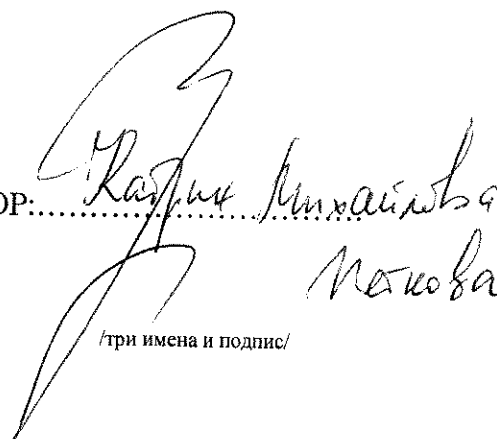 ОР:.......... Катрин Михайлова
Петкова
/три имена и подпис/